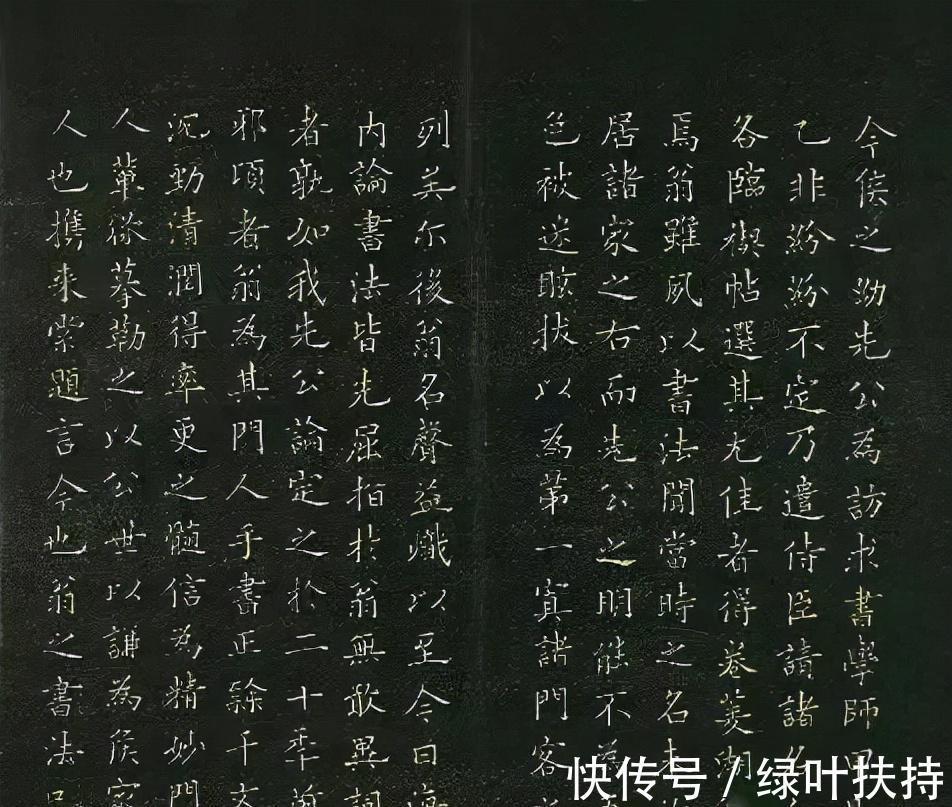 今侯之幼先公為訪求書學師甲
乙非紛紛不定乃遣侍臣請諸名
各臨禊帖選其尤佳者得卷菱湖
焉翁雖夙以書法聞當時之名未
居諸家之右而先公之明能不為
色被迷眩拔以為第一寘諸門客
列美尔後翁名聲益熾以至今日海
內論書法皆先屈指於翁無敢異詞
者孰如我先公論定之於二十年前
邪頃者翁為其門人手書正隸千文
沉勁清潤得率更之髓信為精妙門
人輩將摹勒之以公世以謙為侯家
人也携来索題言今也翁之書法
快传号 / 绿叶扶持